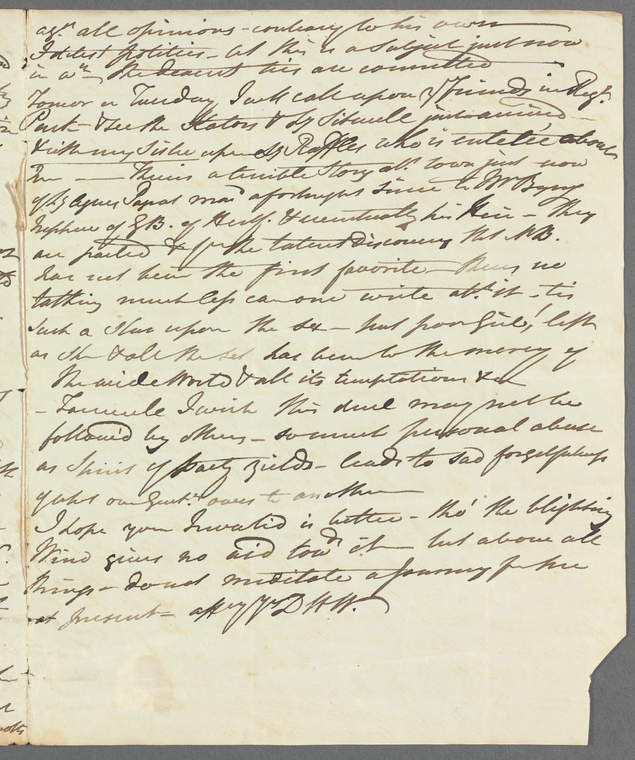 agst all opinions - contrary to his own
I detest politics - at this is a subject just now
in wch the dearest ties are committed
Tomor or Tuesday I shall call upon yr friends in Regts
Park & see the Statons & Ly Sitwell just arrived -
& with my Sister upon Ly Raffles who is entêtée about
her — There is a terrible Story abt town just now
of Ly Agnes Paget mard a fortnight since to Mr Byng
Nephew of G B. of Hertf. & eventually his Heir - They
are parted & fm the latter's discovery that N B.
has not been the first favorite - There's no
talking much less can one write abt it - tis
such a Slur upon the sex - but poor Girl! left
as She & all the set has been to the mercy of
the wide World & all its temptations &c
- Farewell I wish this duel may not be
followed by others - so much personal abuse
as Spirit of party yields - leads to sad forgetfulness
of what one Gentn owes to another
I hope your Invalid is better - tho' the blighting
Wind gives no aid towds it - but above all
things - do not meditate a Journey for her
at present - affly Yrs D H W.